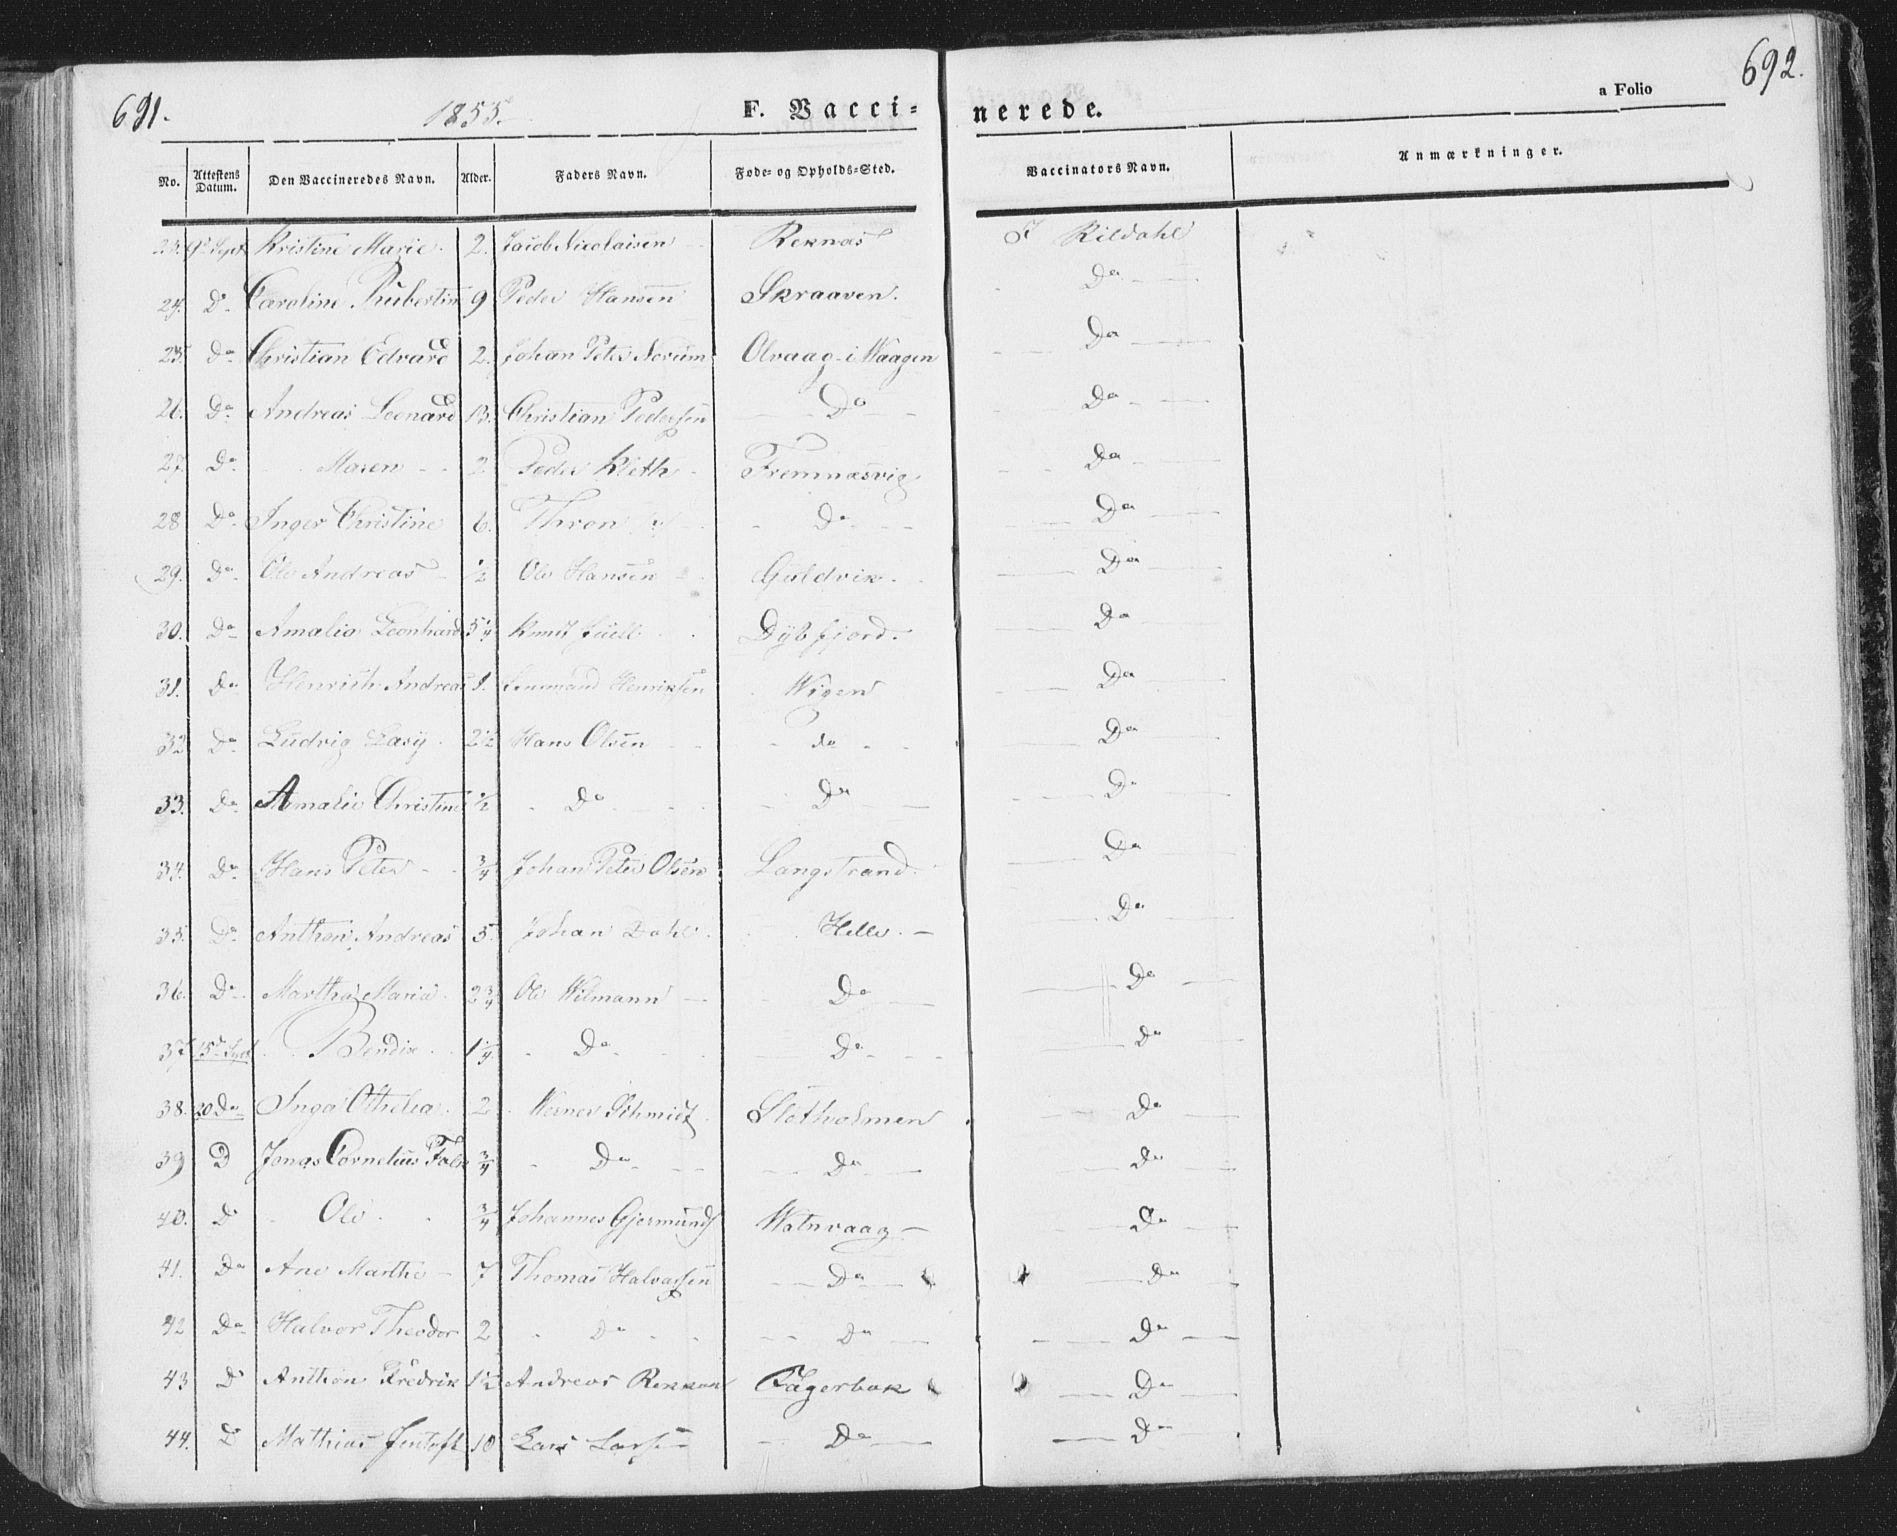 691.
1855.
F. Vacci-
nerede.
a Folio
692.
No. Attestens Datum. Den Vaccineredes Navn. Alder. Faders Navn. Føde- og Opholds-Sted. Vaccinators Navn. Anmærkninger.
9d Sept Kristine Marie. 2. Jacob Nicolaisen Reknæs Kildahl
24. Do Caroline Rubertin 9 Peder Hansen Skraaven. Do
25. Do Christian Edvard 2. Johan Peter Norum Olvaag i Waagen Do
26. Do Andreas Leonard 13. Christian Pedersen Do Do
27. Do Maren 2. Peder Kleth Fremnæsvig Do
28 Do Inger Christine 6. Thron Do Do
29. Do Ole Andreas 1/2 Ole Hansen Guldvik. Do
30. Do Amalia Leonhard 5 1/4 Knud Juell Dybfjord. Do
31. Do Henrich Andreas 1. Henriksen Wigen Do
32 Do Ludvig 2 1/2 Hans Olsen do Do
33. Do Amalie Christine 1/2 Do Do Do
34. Do Hans Peter 3/4 Johan Peter Olsen Langstrand. Do
35. Do Anthon Andreas 5. Johan Dahl. Helle. Do
36. Do Martha Maria 2 3/4 Ole Wilmann Do Do
37 15d Sept Bendix 1 1/4 Do Do Do
38. 20 Do Inga Othelia. 2 Werner Schmidt Slotholmen Do
39 D Jonas Cornelius Falk 3/4 Do Do Do
40. D Ole 3/4 Johannes Gjermunds Watnvaag Do
41. Do Ane Marthe 7 Thomas Halvorsen Do Do
42 Do Halvor Theodor 2 Do Do Do
43 D Anthon Fredrik 1 1/2 Andreas Rekkan Fagerbak Do
44. D Mathias Jentoft 10 Lars Larsen Do Do